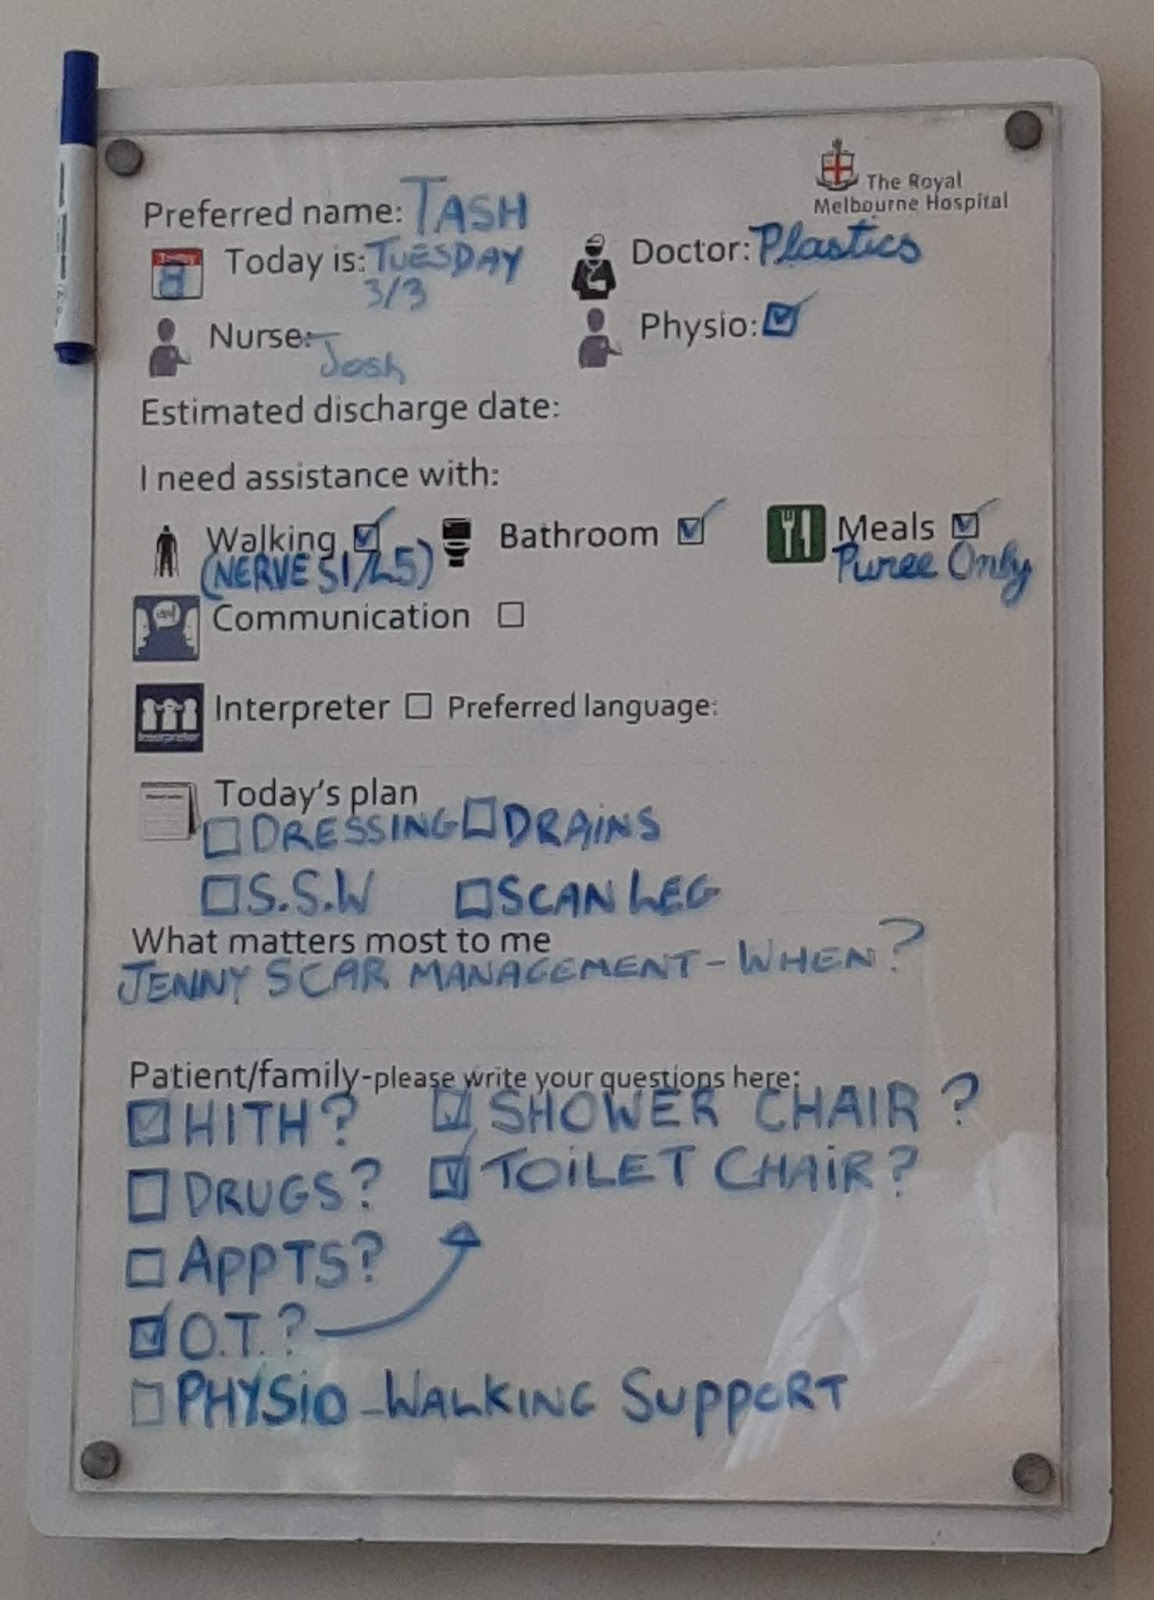 The Royal
Melbourne Hospital
Preferred name: TASH
Today is: TUESDAY
3/3
Doctor: Plastics
Nurse: Josh
Physio: ☑
Estimated discharge date:
I need assistance with:
Walking ☑ Bathroom ☑ Meals ☑
(NERVE S1/L5) Puree Only
Communication ☐
Interpreter ☐ Preferred language:
Today's plan
☐ DRESSING ☐ DRAINS
☐ S.S.W ☐ SCAN LEG
What matters most to me
JENNY SCAR MANAGEMENT - WHEN?
Patient/family-please write your questions here:
☑ HITH? ☑ SHOWER CHAIR?
☐ DRUGS? ☑ TOILET CHAIR?
☐ APPTS?
☑ O.T.?
☐ PHYSIO - WALKING SUPPORT